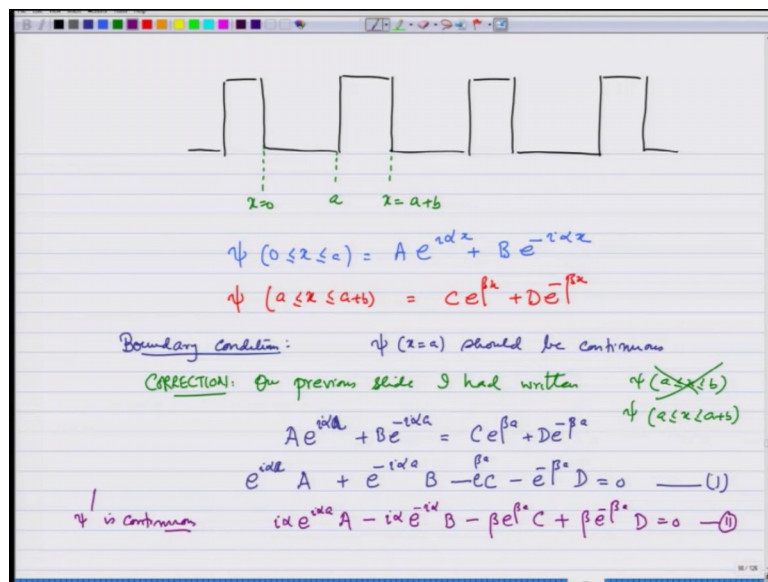 x=0 a x=a+b
ψ (0≤x≤a) = A e^{iαx} + B e^{-iαx}
ψ (a≤x≤a+b) = C e^{βx} + D e^{-βx}
Boundary condition: ψ (x=a) should be continuous
CORRECTION: On previous slide I had written ψ (a≤x≤b)
ψ (a≤x≤a+b)
A e^{iαa} + B e^{-iαa} = C e^{βa} + D e^{-βa}
e^{iαa} A + e^{-iαa} B - e^{βa} C - e^{-βa} D = 0 —— (1)
ψ' is continuous iα e^{iαa} A - iα e^{-iα} B - β e^{βa} C + β e^{-βa} D = 0 — (11)